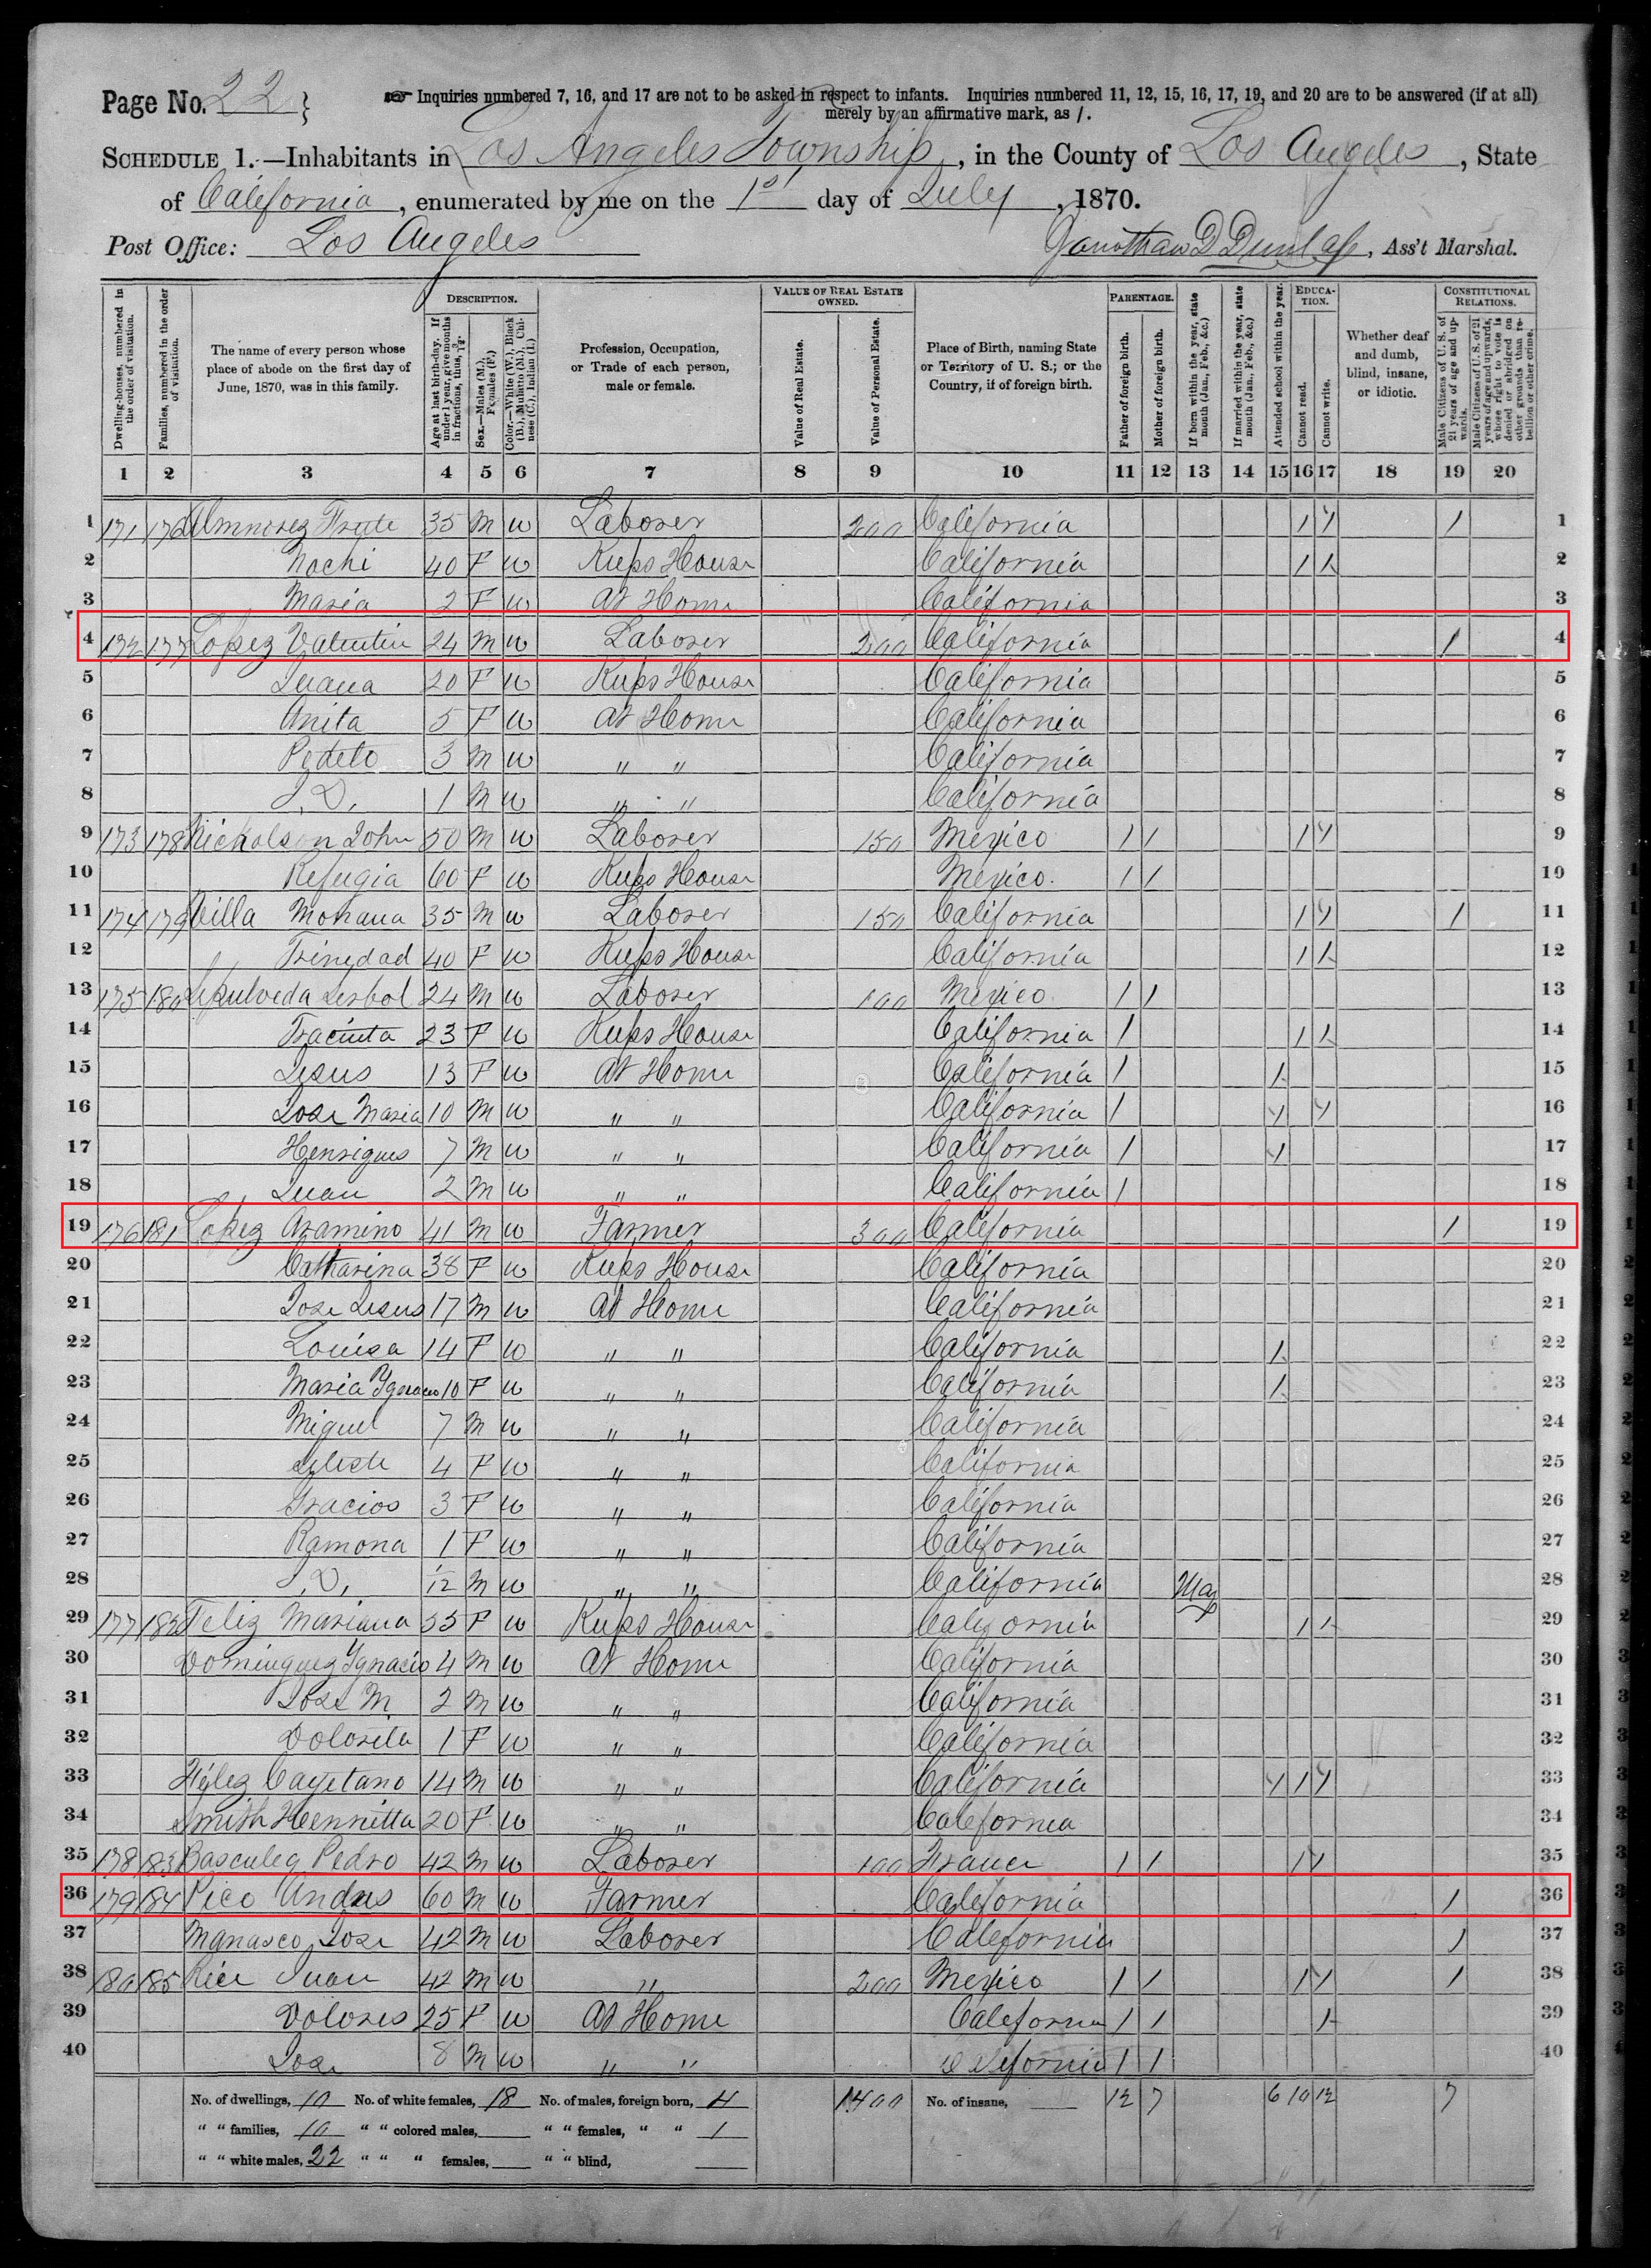 Page No. 22 } Inquiries numbered 7, 16, and 17 are not to be asked in respect to infants. Inquiries numbered 11, 12, 15, 16, 17, 19, and 20 are to be answered (if at all)
merely by an affirmative mark, as /.
SCHEDULE 1.—Inhabitants in Los Angeles Township, in the County of Los Angeles, State
of California, enumerated by me on the 1st day of July, 1870.
Post Office: Los Angeles Jonothan D Dunlap, Ass't Marshal.
Dwelling-houses, numbered in the order of visitation.
Families, numbered in the order of visitation.
The name of every person whose place of abode on the first day of June, 1870, was in this family.
DESCRIPTION.
Age at last birth-day. If under 1 year, give months in fractions, thus, 3/12.
Sex.—Males (M.), Females (F.)
Color.—White (W.), Black (B.), Mulatto (M.), Chinese (C.), Indian (I.)
Profession, Occupation, or Trade of each person, male or female.
VALUE OF REAL ESTATE OWNED.
Value of Real Estate.
Value of Personal Estate.
Place of Birth, naming State or Territory of U. S.; or the Country, if of foreign birth.
PARENTAGE.
Father of foreign birth.
Mother of foreign birth.
If born within the year, state month (Jan., Feb., &c.)
If married within the year, state month (Jan., Feb., &c.)
Attended school within the year.
EDUCATION.
Cannot read.
Cannot write.
Whether deaf and dumb, blind, insane, or idiotic.
CONSTITUTIONAL RELATIONS.
Male Citizens of U. S. of 21 years of age and upwards.
Male Citizens of U. S. of 21 years of age and upwards, whose right to vote is denied or abridged on other grounds than rebellion or other crime.
1 2 3 4 5 6 7 8 9 10 11 12 13 14 15 16 17 18 19 20
1 171 176 35 M W Laborer 200 California 1 1 1 1
2 Nochi 40 F W Keeps House California 1 1 2
3 Maria 2 F W At Home California 3
4 172 177 Lopez Valentin 24 M W Laborer 200 California 1 4
5 Juana 20 F W Keeps House California 5
6 Anita 5 F W At Home California 6
7 Pedeto 3 M W " " California 7
8 J. D. 1 M W " " California 8
9 173 178 Nickolson John 50 M W Laborer 150 Mexico 1 1 1 1 9
10 Refugia 60 F W Keeps House Mexico 1 1 10
11 174 179 Villa Mohana 35 M W Laborer 150 California 1 1 1 11
12 Trinedad 40 F W Keeps House California 1 1 12
13 175 180 Sepulveda 24 M W Laborer 100 Mexico 1 1 13
14 Tracinta 23 F W Keeps House California 1 1 1 14
15 Jesus 13 F W At Home California 1 1 15
16 Jose Maria 10 M W " " California 1 1 1 16
17 Henriques 7 M W " " California 1 1 17
18 Juan 2 M W " " California 1 18
19 176 181 Lopez Aramino 41 M W Farmer 300 California 1 19
20 Catharina 38 F W Keeps House California 20
21 Jose Jesus 17 M W At Home California 21
22 Louisa 14 F W " " California 1 22
23 Maria Ygnacio 10 F W " " California 1 23
24 Miguel 7 M W " " California 24
25 4 F W " " California 25
26 Gracios 3 F W " " California 26
27 Ramona 1 F W " " California 27
28 J. D. 1/12 M W " " California May 28
29 177 182 Feliz Mariana 55 F W Keeps House California 1 1 29
30 Dominguez Ygnacio 4 M W At Home California 30
31 Jose M 2 M W " " California 31
32 Dolorita 1 F W " " California 32
33 Cayetano 14 M W " " California 1 1 1 33
34 Smith Hennitta 20 F W " " California 34
35 178 183 Pedro 42 M W Laborer 100 France 1 1 1 1 35
36 179 184 Pico Andres 60 M W Farmer California 1 36
37 Manasco Jose 42 M W Laborer California 1 37
38 180 185 Juan 42 M W " 200 Mexico 1 1 1 1 1 38
39 Dolores 25 F W At Home California 1 1 1 39
40 Jose 8 M W " " California 1 1 40
No. of dwellings, 10 No. of white females, 18 No. of males, foreign born, 4 1400 No. of insane, 12 7 6 10 12 7
" " families, 10 " " colored males, " " females, " " 1
" " white males, 22 " " " females, " " blind,